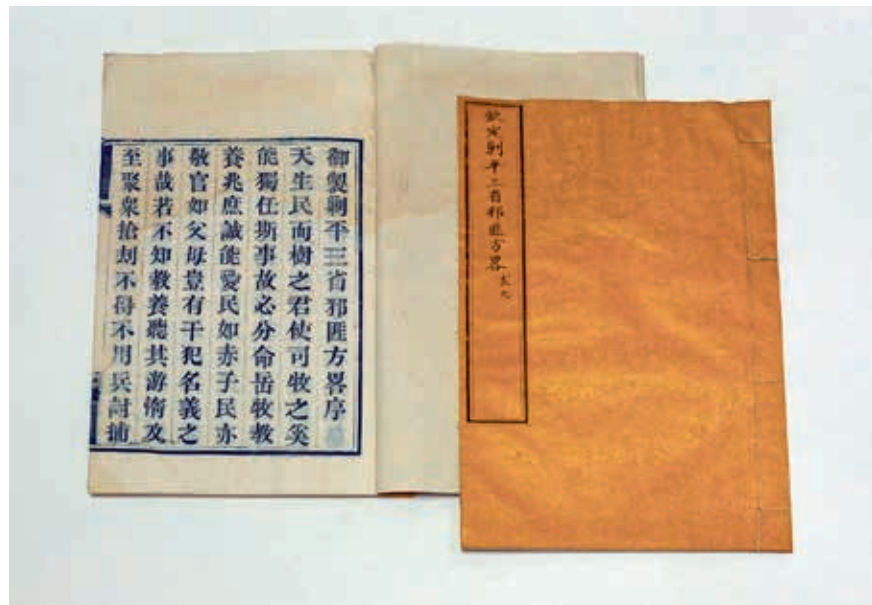 御製剿平三省邪匪方畧序
天生民而樹之君使司牧之奚
能獨任斯事故必分命岳牧教
養兆庶誠能愛民如赤子民亦
敬官如父母豈有干犯名義之
事哉若不知教養聽其游惰及
至聚衆搶刼不得不用兵討捕
欽定剿平三省邪匪方畧